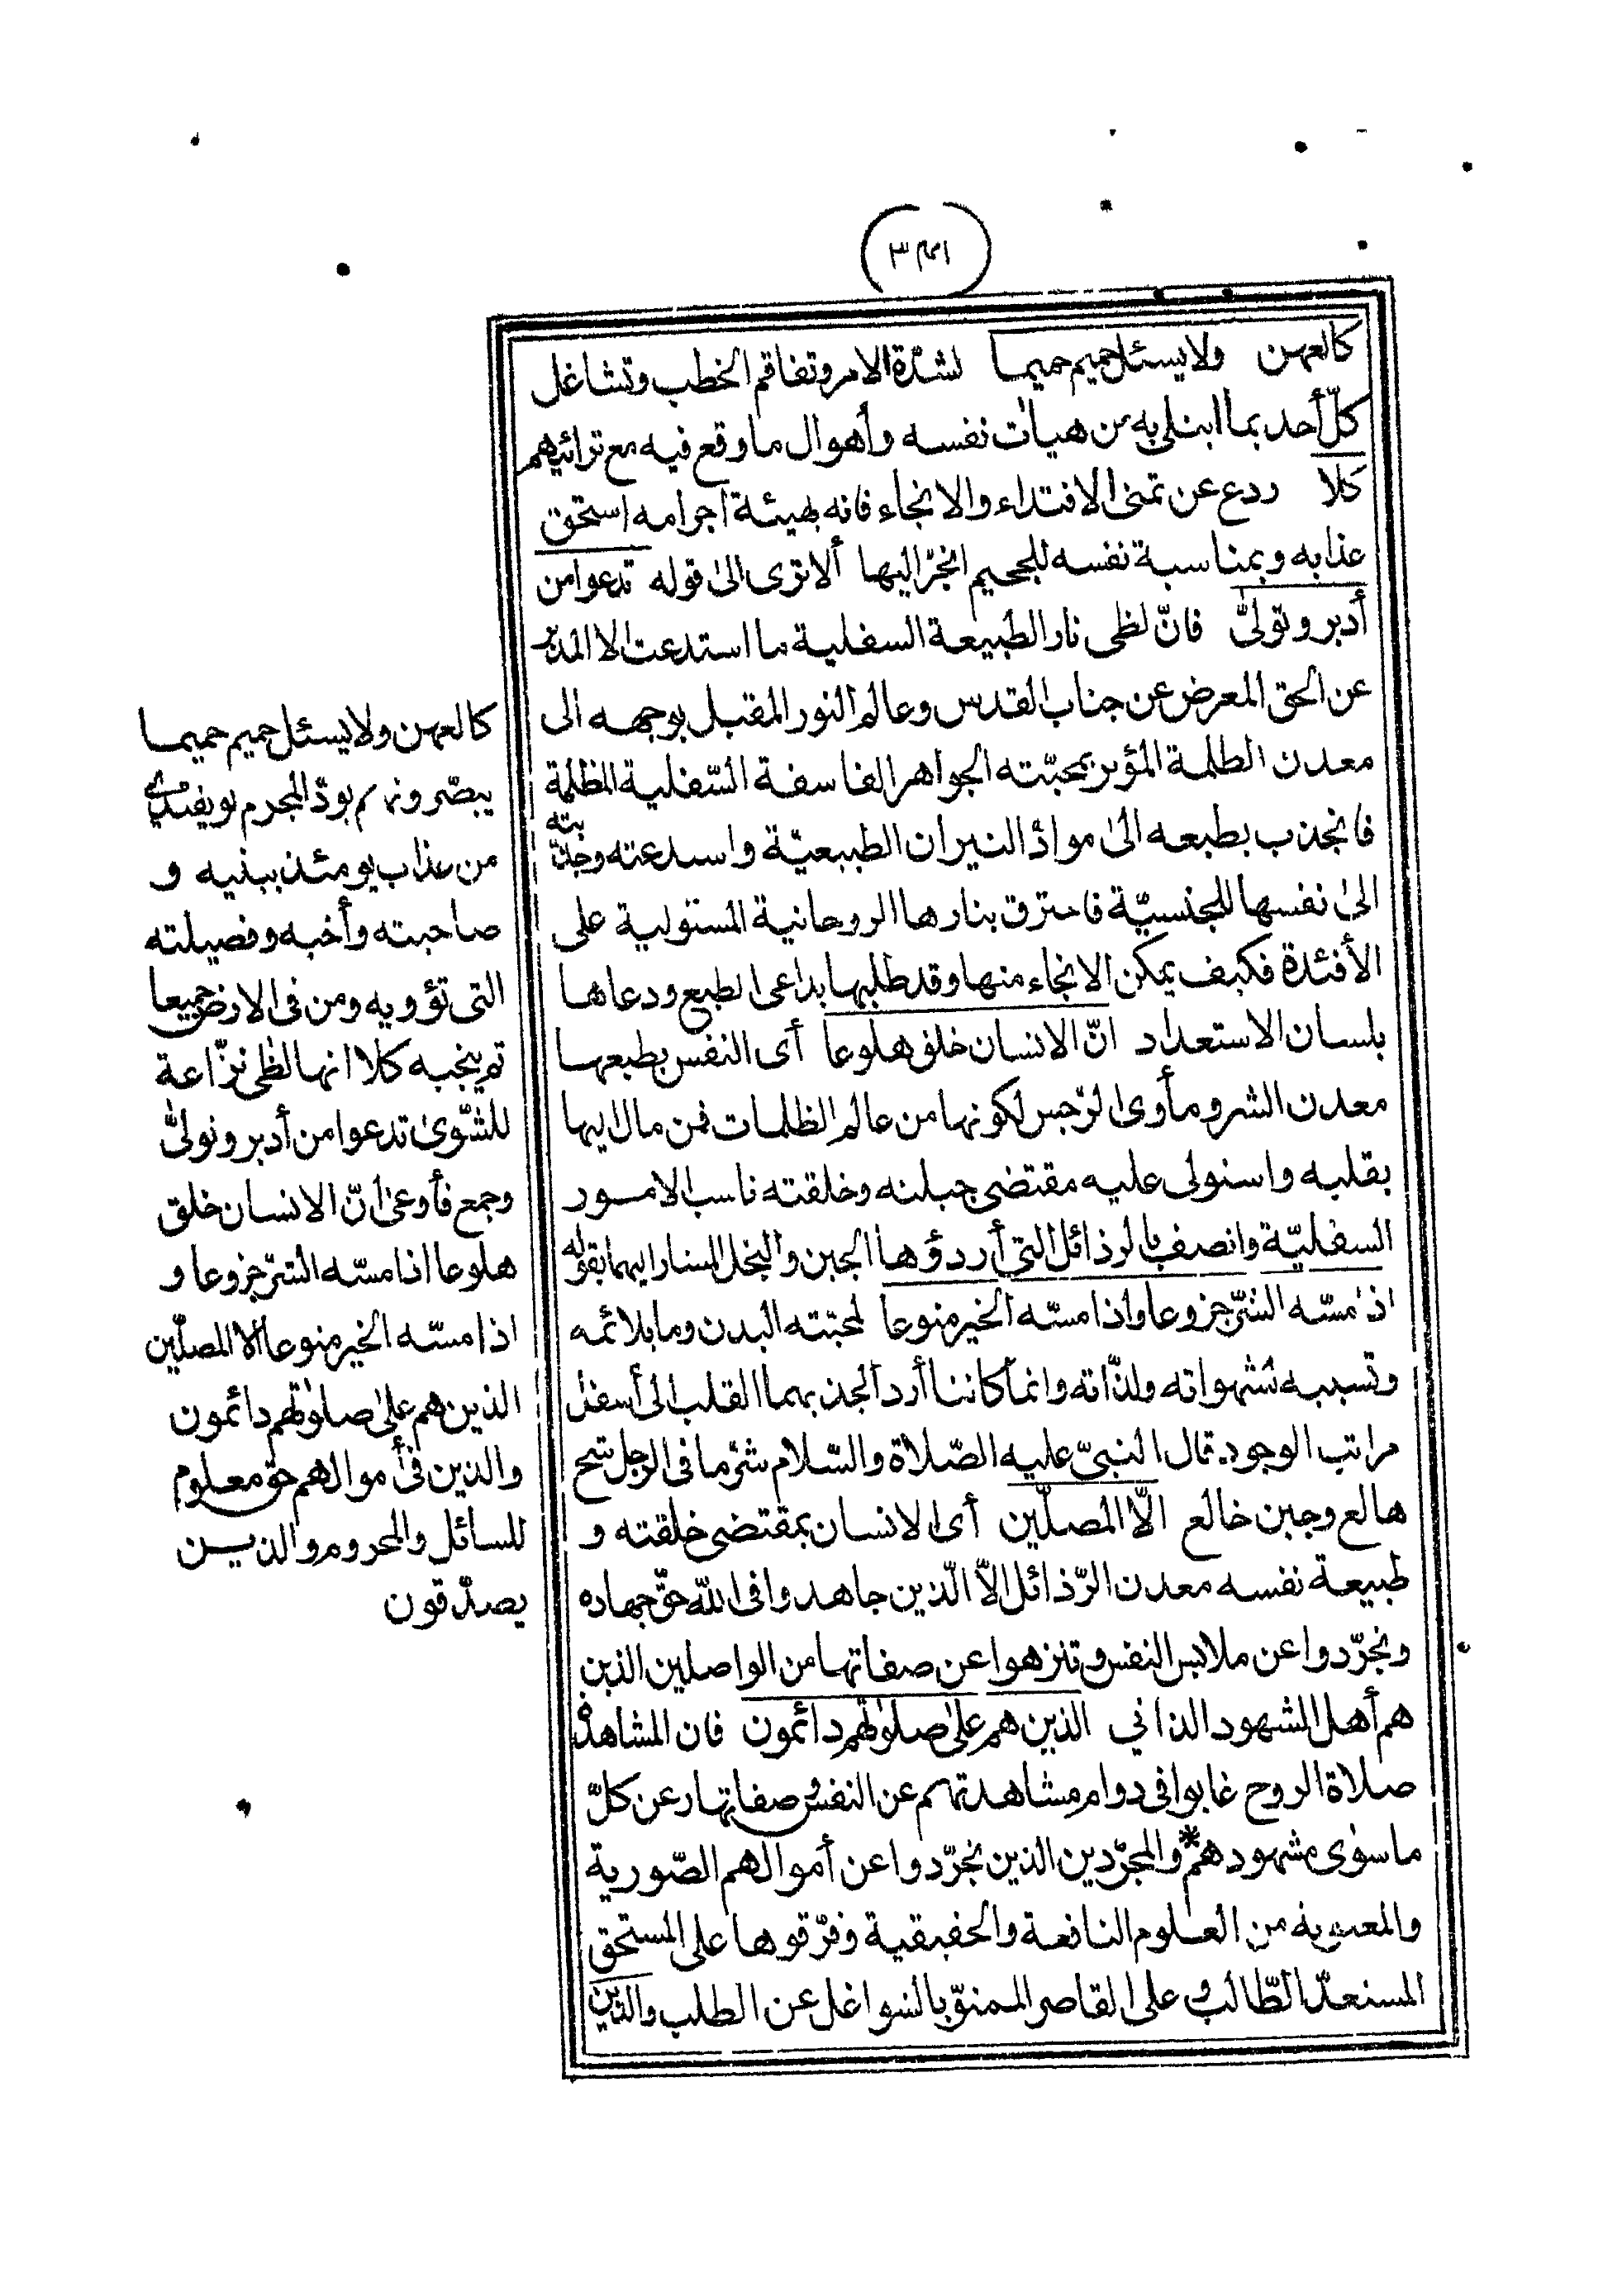 كالعهن ولا يسئل حميم حميما لشدّة الامر وتفاقم الخطب وتشاغل
كلّ أحد بما ابتلى به من هيآت نفسه وأهوال ما وقع فيه مع ترائيهم
كلا ردع عن تمنى الافتداء والانجاء فانه بهيئة اجرامه استحق
عذابه وبمناسبة نفسه للجحيم انجرّ اليها ألا ترى الىٰ قوله تدعوا من
أدبر وتولىّٰ فانّ لظى نار الطبيعة السفلية ما استدعت الا المدبر
عن الحق المعرض عن جناب القدس وعالم النور المقبل بوجهه الى
معدن الظلمة المؤثر بمحبّته الجواهر الفاسقة السّفلية المظلمة
فانجذب بطبعه الىٰ موادّ النيران الطبيعيّة واستدعته وجذبته
الىٰ نفسها للجنسيّة فاحترق بنارها الروحانية المستولية على
الأفئدة فكيف يمكن الانجاء منها وقد طلبها بداعى الطبع ودعاها
بلسان الاستعداد انّ الانسان خلق هلوعا أى النفس بطبعها
معدن الشر ومأوى الرّجس لكونها من عالم الظلمات فمن مال اليها
بقلبه واستولى عليه مقتضى جبلته وخلقته ناسب الامور
السفليّة واتصف بالرذائل التى أردؤها الجبن والبخل المشار اليهما بقوله
اذا مسّه الشرّ جزوعا واذا مسّه الخير منوعا لمحبّته البدن وما يلائمه
وتسببه شهواته ولذّاته وانما كانتا أردأ لجذبهما القلب الى أسفل
مراتب الوجود قال النبىّ عليه الصّلاة والسّلام شرّ ما فى الرجل شح
هالع وجبن خالع الّا المصلّين أى الانسان بمقتضى خلقته و
طبيعة نفسه معدن الرّذائل الاّ الّذين جاهدوا فى اللّه حقّ جهاده
وتجرّدوا عن ملابس النفس وتنزهوا عن صفاتها من الواصلين الذين
هم أهل الشهود الذاتي الذين هم علىٰ صلوٰتهم دائمون فان المشاهدة
صلاة الروح غابوا فى دوام مشاهدتهم عن النفس وصفاتها وعن كلّ
ما سوٰى مشهودهم * والمجرّدين الذين تجرّدوا عن أموالهم الصّورية
والمعنوية من العلوم النافعة والحقيقية وفرّقوها على المستحق
المستعدّ الطّالب وعلى القاصر الممنوّ بالشواغل عن الطلب والذين
كالعهن ولا يسئل حميم حميما
يبصّرونهم يودّ المجرم لو يفتدى
من عذاب يومئذ ببنيه و
صاحبته وأخيه وفصيلته
التى تؤويه ومن فى الارض جميعا
ثم ينجيه كلا انها لظٰى نزّاعة
للشّوىٰ تدعوا من أدبر وتولىّٰ
وجمع فأوعىٰ انّ الانسان خلق
هلوعا اذا مسّه الشرّ جزوعا و
اذا مسّه الخير منوعا الّا المصلّين
الذين هم علىٰ صلوٰتهم دائمون
والذين فى أموالهم حق معلوم
للسائل والمحروم والذيـن
يصدّقون